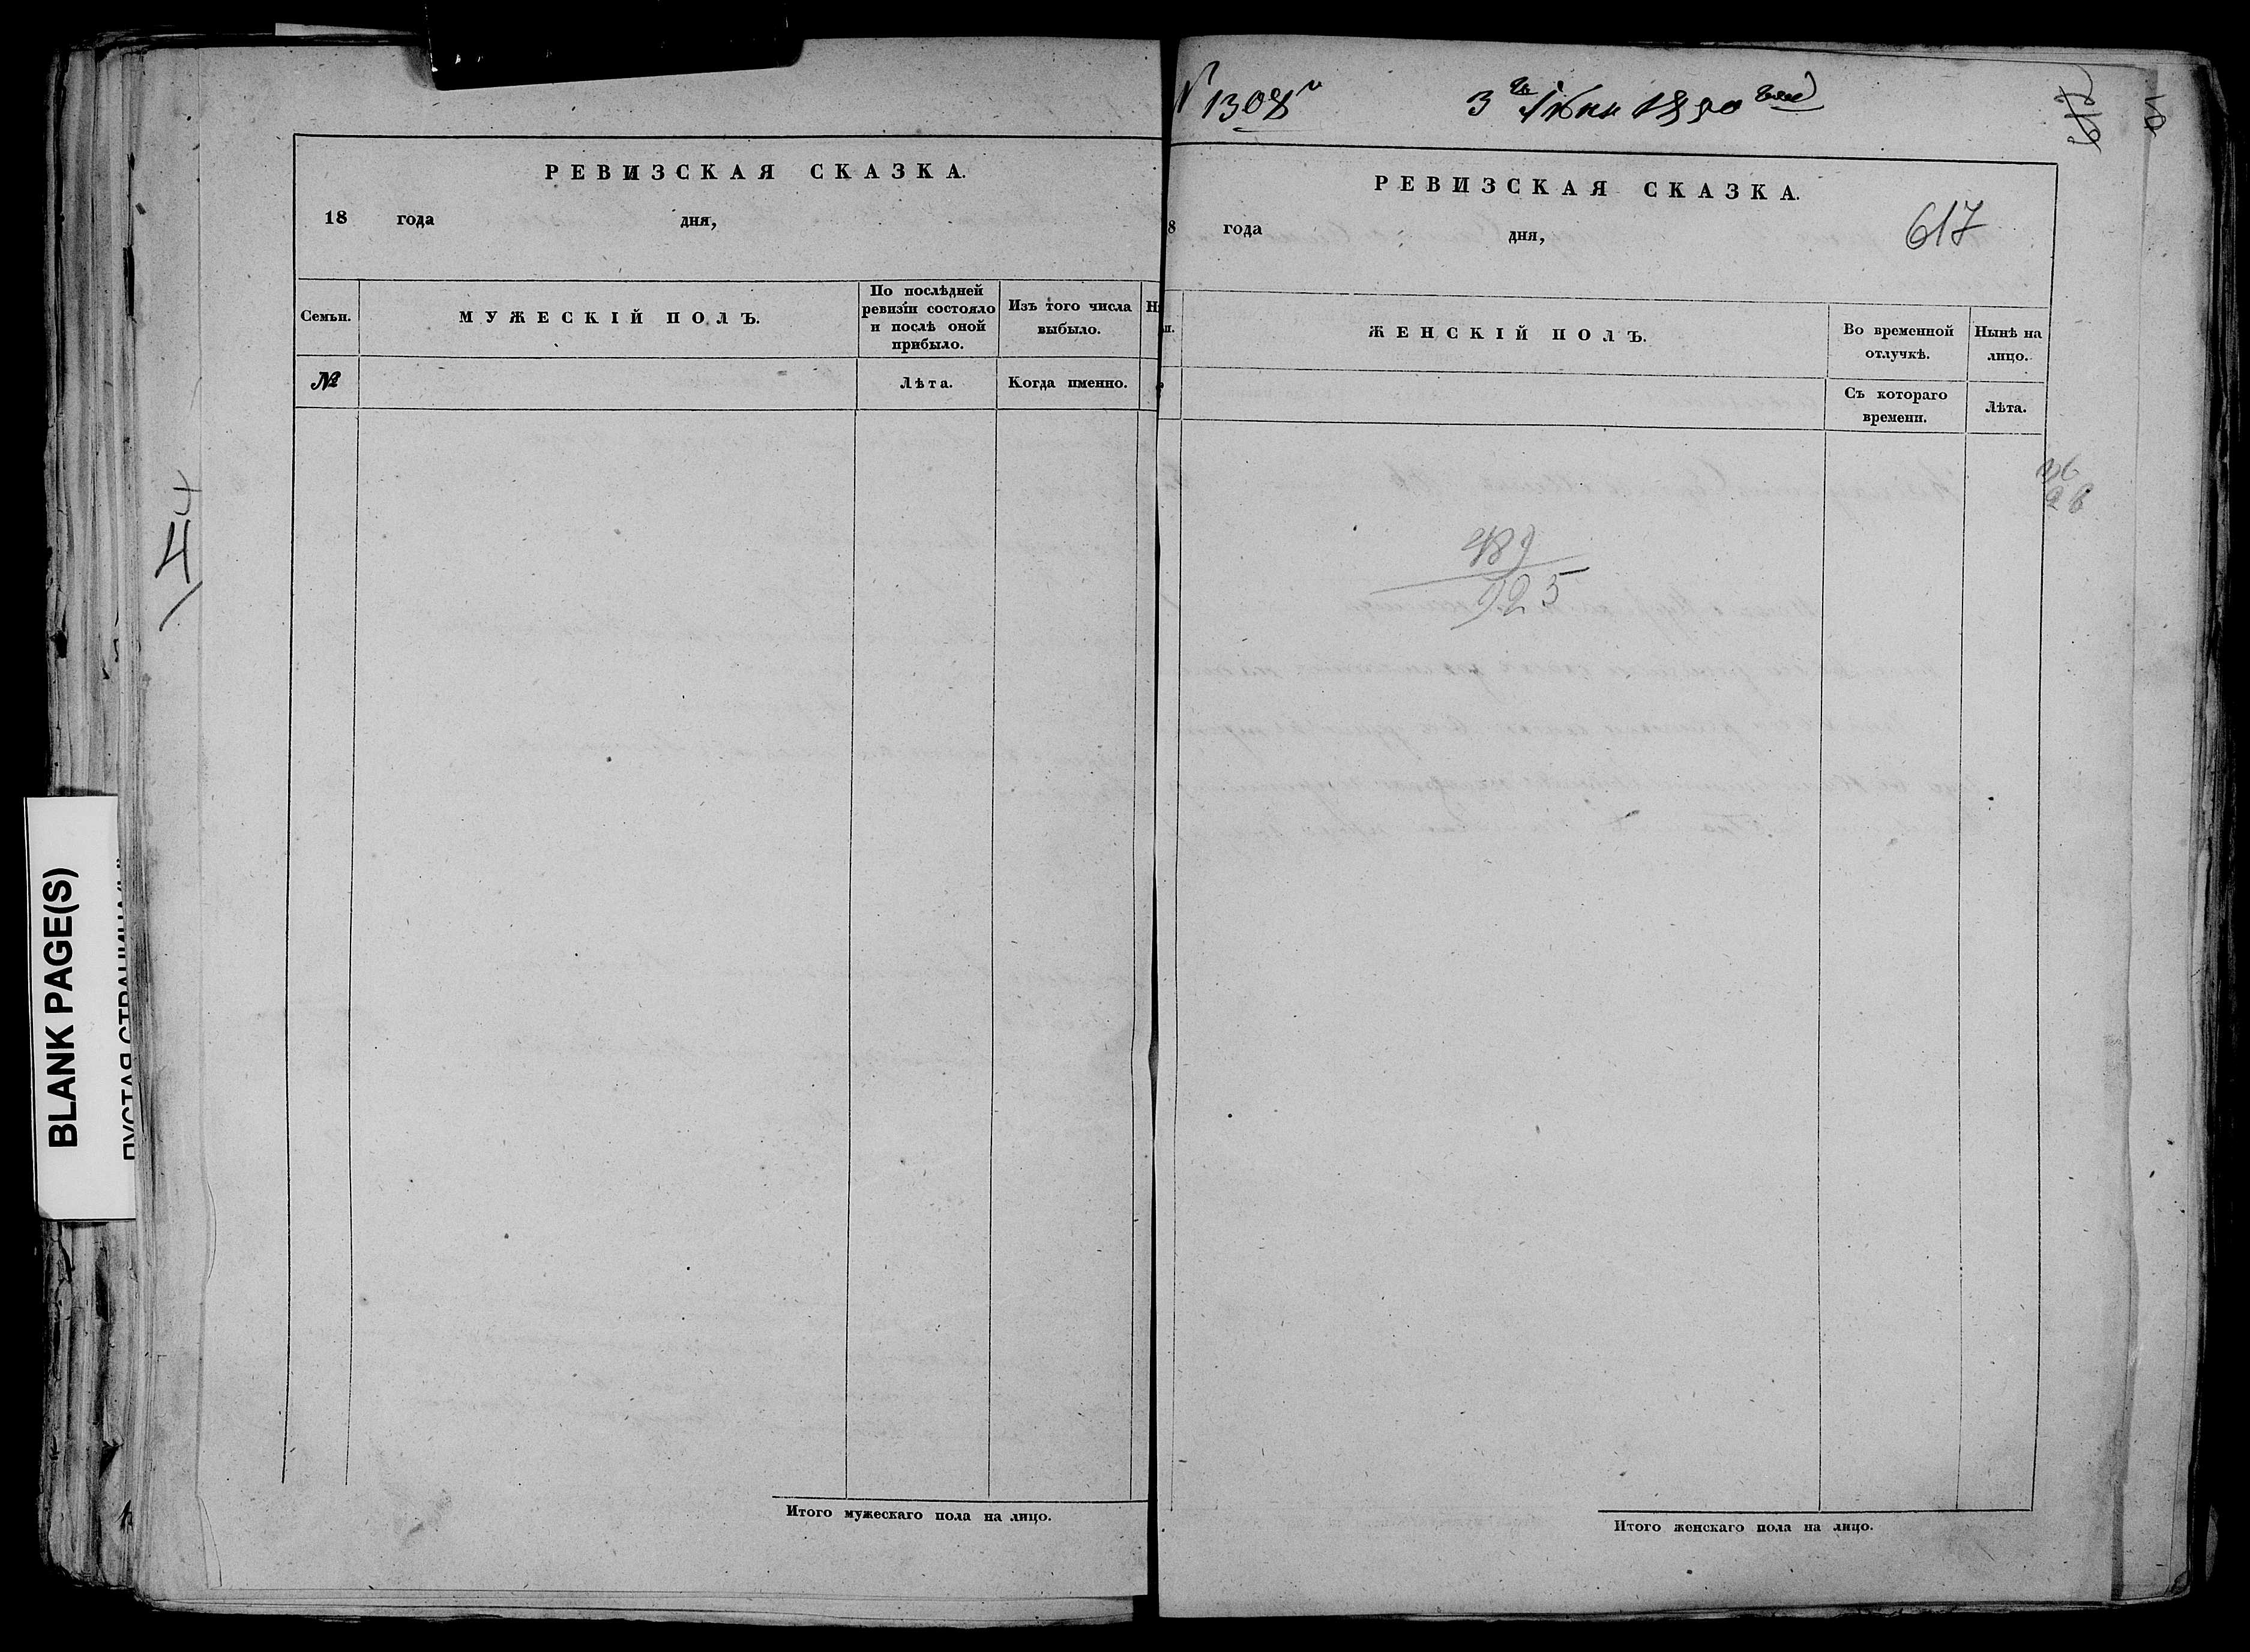 РЕВИЗСКАЯ СКАЗКА.
18 года дня,
Семьи.
МУЖЕСКІЙ ПОЛЪ.
По послѣдней ревизіи состояло и послѣ оной прибыло.
Изъ того числа выбыло.
№
Лѣта.
Когда именно.
Итого мужескаго пола на лицо.
44
BLANK PAGE(S)
ПУСТАЯ СТРАНИЦА(Ы)
№ 1308
3 Іюня 1850
РЕВИЗСКАЯ СКАЗКА.
8 года дня,
617
ЖЕНСКІЙ ПОЛЪ.
Во временной отлучкѣ.
Нынѣ на лицо.
Съ котораго времени.
Лѣта.
489
925
Итого женскаго пола на лицо.